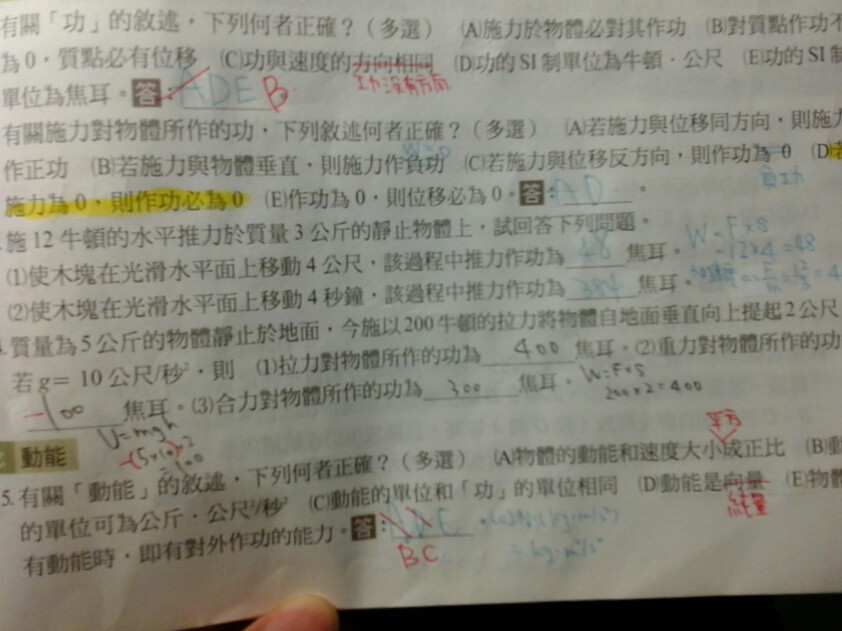 有關「功」的敘述，下列何者正確？（多選） (A)施力於物體必對其作功 (B)對質點作功不
為 0，質點必有位移 (C)功與速度的方向相同 (D)功的 SI 制單位為牛頓．公尺 (E)功的 SI 制
功沒有方向
單位為焦耳。答：ADE B
有關施力對物體所作的功，下列敘述何者正確？（多選） (A)若施力與位移同方向，則施力
W=0
作正功 (B)若施力與物體垂直，則施力作負功 (C)若施力與位移反方向，則作功為 0 (D)若
負功
施力為 0，則作功必為 0 (E)作功為 0，則位移必為 0。答：AD。
施 12 牛頓的水平推力於質量 3 公斤的靜止物體上，試回答下列問題。
W=F×S
(1)使木塊在光滑水平面上移動 4 公尺，該過程中推力作功為 48 焦耳。
=12×4=48
(2)使木塊在光滑水平面上移動 4 秒鐘，該過程中推力作功為 384 焦耳。
質量為 5 公斤的物體靜止於地面，今施以 200 牛頓的拉力將物體自地面垂直向上提起 2 公尺
若 g= 10 公尺/秒²，則 (1)拉力對物體所作的功為 400 焦耳。(2)重力對物體所作的功
-100 焦耳。(3)合力對物體所作的功為 300 焦耳。
W=F×S
200×2=400
U=mgh
-(5×10)×2
=100
動能
平方
5.有關「動能」的敘述，下列何者正確？（多選） (A)物體的動能和速度大小成正比 (B)動
的單位可為公斤．公尺²/秒² (C)動能的單位和「功」的單位相同 (D)動能是向量 (E)物體
純量
有動能時，即有對外作功的能力。答：ADE。
BC